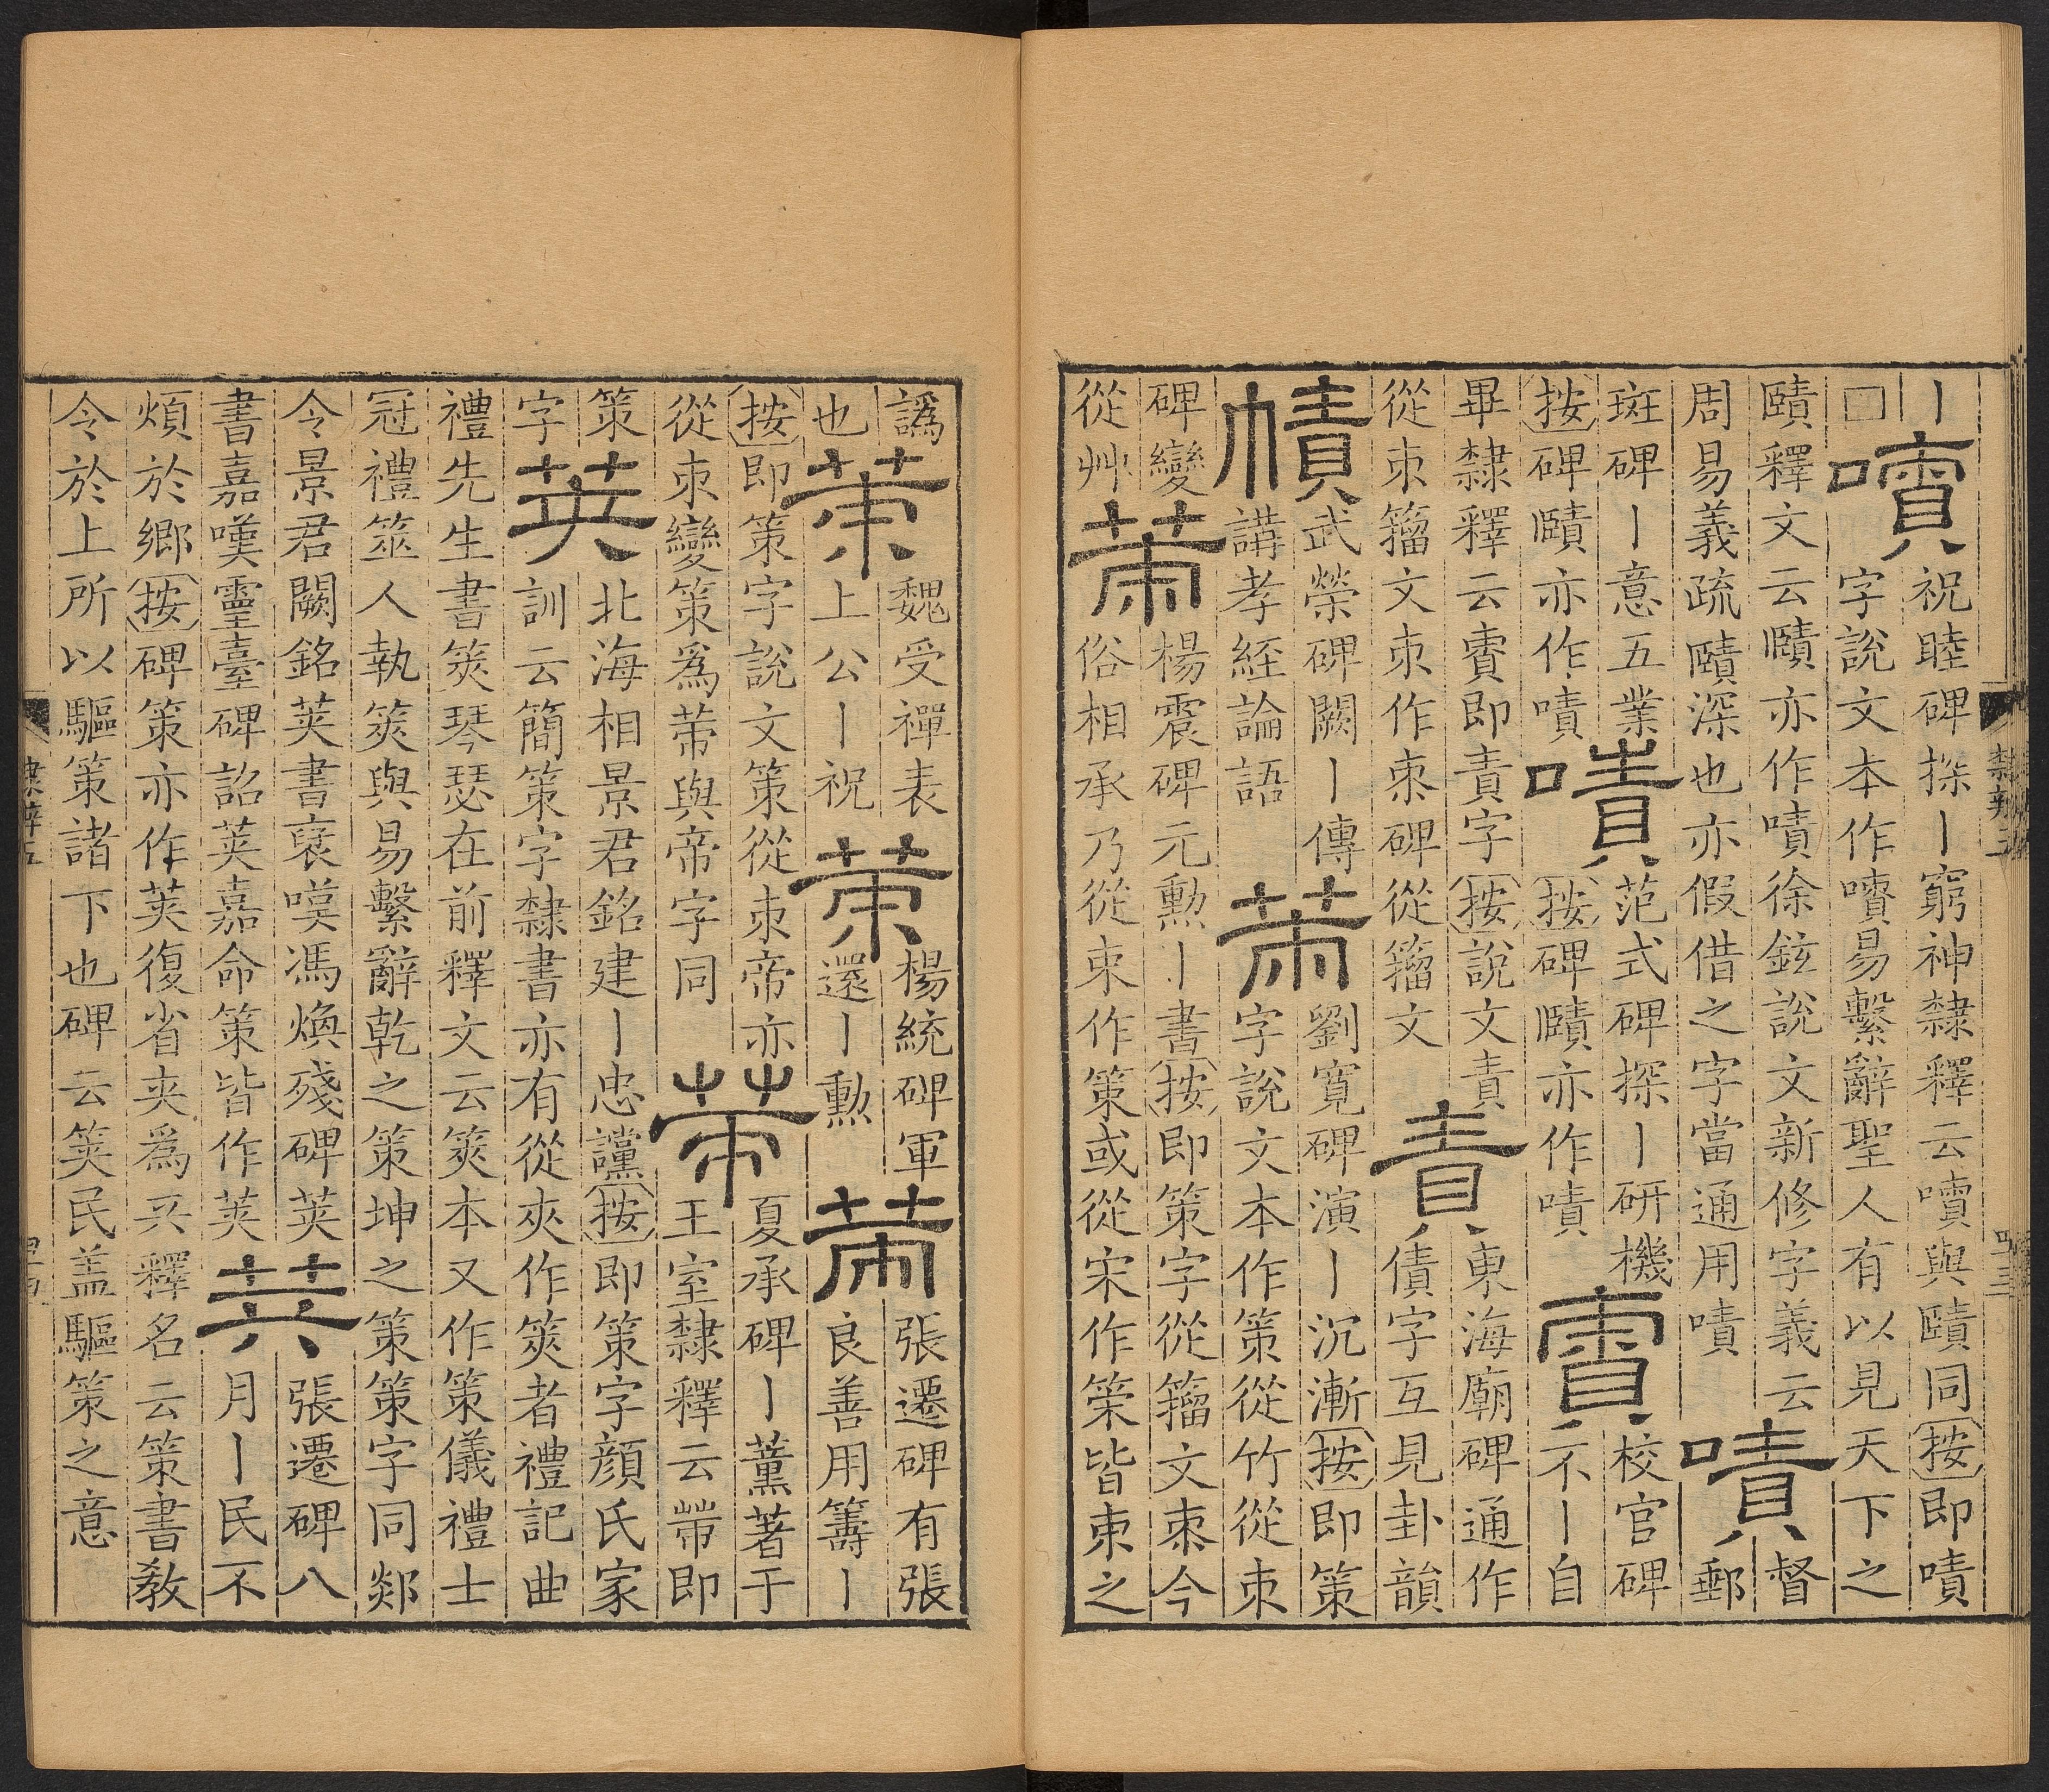 丨
□
嚽
祝睦碑探丨窮神隸釋云嘖與賾同按即嘖
字說文本作嘖易繫辭聖人有以見天下之
賾釋文云賾亦作嘖徐鉉說文新修字義云
周易義疏賾深也亦假借之字當通用嘖
嘖
督
郵
斑碑丨意五業
按碑賾亦作嘖
嘖
范式碑探丨研機
按碑賾亦作嘖
賷
校官碑
不丨自
畢隸釋云賷即責字按說文責
從朿籀文朿作朿碑從籀文
責
東海廟碑通作
債字互見卦韻
幘
武榮碑闕丨傳
講孝經論語
萗
劉寬碑演丨沉漸按即策
字說文本作策從竹從朿
碑變
從艸
萗
楊震碑元勳丨書按即策字從籀文朿今
俗相承乃從束作策或從宋作筞皆朿之
譌
也
茦
魏受禪表
上公丨祝
茦
楊統碑軍
還丨勳
萗
張遷碑有張
良善用籌丨
按即策字說文策從朿帝亦
從朿變策爲䔇與帝字同
䔇
夏承碑丨薰著于
王室隸釋云䔇即
策
字
莢
北海相景君銘建丨忠讜按即策字顔氏家
訓云簡策字隸書亦有從夾作筴者禮記曲
禮先生書筴琴瑟在前釋文云筴本又作策儀禮士
冠禮筮人執筴與易繫辭乾之策坤之策策字同郯
令景君闕銘莢書裒嘆馮煥殘碑莢
書嘉嘆靈臺碑詔莢嘉命策皆作莢
張遷碑八
月丨民不
煩於鄉按碑策亦作莢復省夾爲㐲釋名云策書教
令於上所以驅策諸下也碑云筴民盖驅策之意
隸辨五
四三
隸辨五
四四